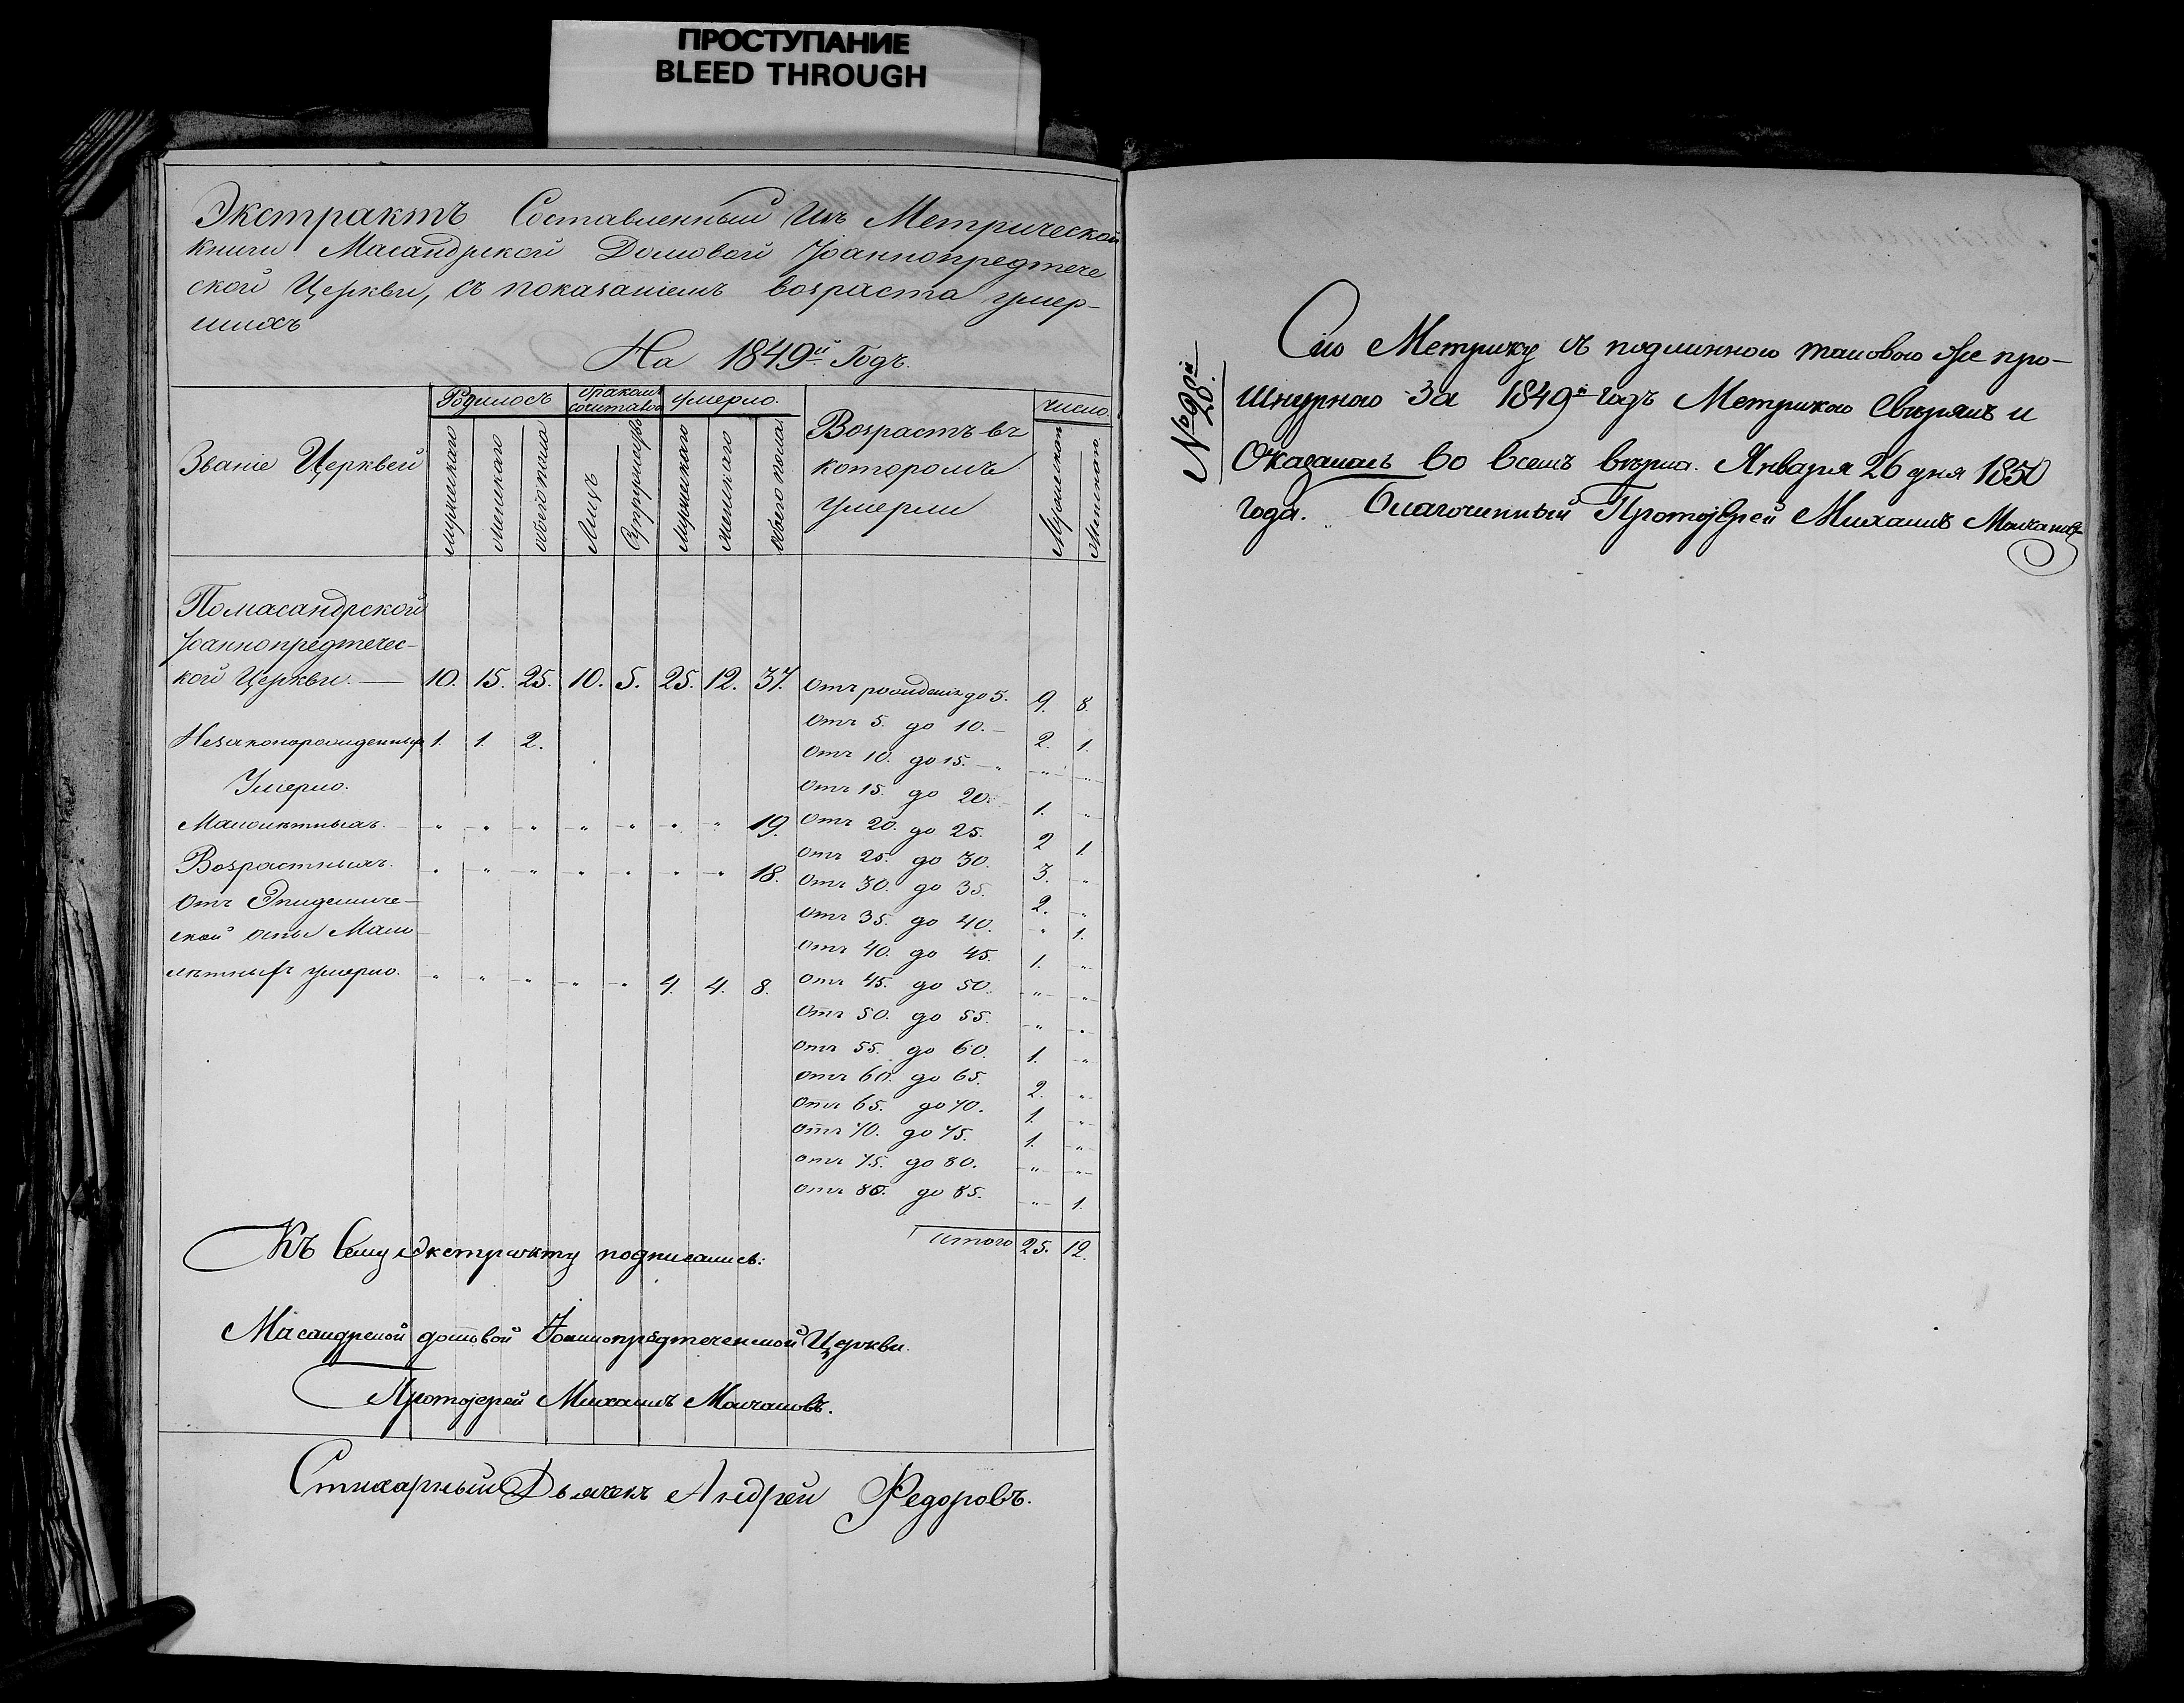 ПРОСТУПАНИЕ
BLEED THROUGH
Экстрактъ Составленный Изъ Метрической
книги Масандрской Домовой Јоаннопредтече
ской Церкви, съ показаніемъ возраста умер-
шихъ
На 1849й Годъ.
Званіе Церквей
Родилось
бракомъ сочиталось
умерло.
Возрастъ въ которомъ умерли
число.
мужескаго
женскаго
обоего пола
Лицъ
Супружествъ
мужескаго
женскаго
обоего пола
Мужескаго
Женскаго.
Помасандрской
Јоаннопредтечес-
кой Церкви. — 10. 15. 25. 10. 5. 25. 12. 37.
Незаконорожденныхъ 1. 1. 2.
Умерло.
Малолѣтныхъ. " " " " " " " 19.
Возрастныхъ. " " " " " " " 18.
Отъ Эпидемиче-
ской оспы Мало
лѣтныхъ умерло. " " " " " 4. 4. 8.
Отъ рожденія до 5. 9. 8.
Отъ 5. до 10. — 2. 1.
Отъ 10. до 15. — " "
Отъ 15. до 20. 1. "
Отъ 20. до 25. 2 1.
Отъ 25. до 30. 3. "
Отъ 30. до 35. 2. "
Отъ 35. до 40. " 1.
Отъ 40. до 45. 1. "
Отъ 45. до 50. " "
Отъ 50. до 55. " "
Отъ 55. до 60. 1. "
Отъ 60. до 65. 2. "
Отъ 65. до 70. 1. "
Отъ 70. до 75. 1. "
Отъ 75. до 80. " "
Отъ 80. до 85. " 1.
итого 25. 12.
Къ Сему Экстракту подписались:
Масандрской домовой Јоаннопредтеченской Церкви.
Протоjерей Михаилъ Молчановъ.
Стихарный Дьячекъ Андрей Федоровъ.
№ 90й
20.
Сію Метрику съ подлинною таковою же про-
шнурною За 1849й годъ Метрикою Свѣрялъ и
Оказалась во всемъ вѣрна. Января 26 дня 1850
года. Благочинный Протоjерей Михаилъ Молчановъ